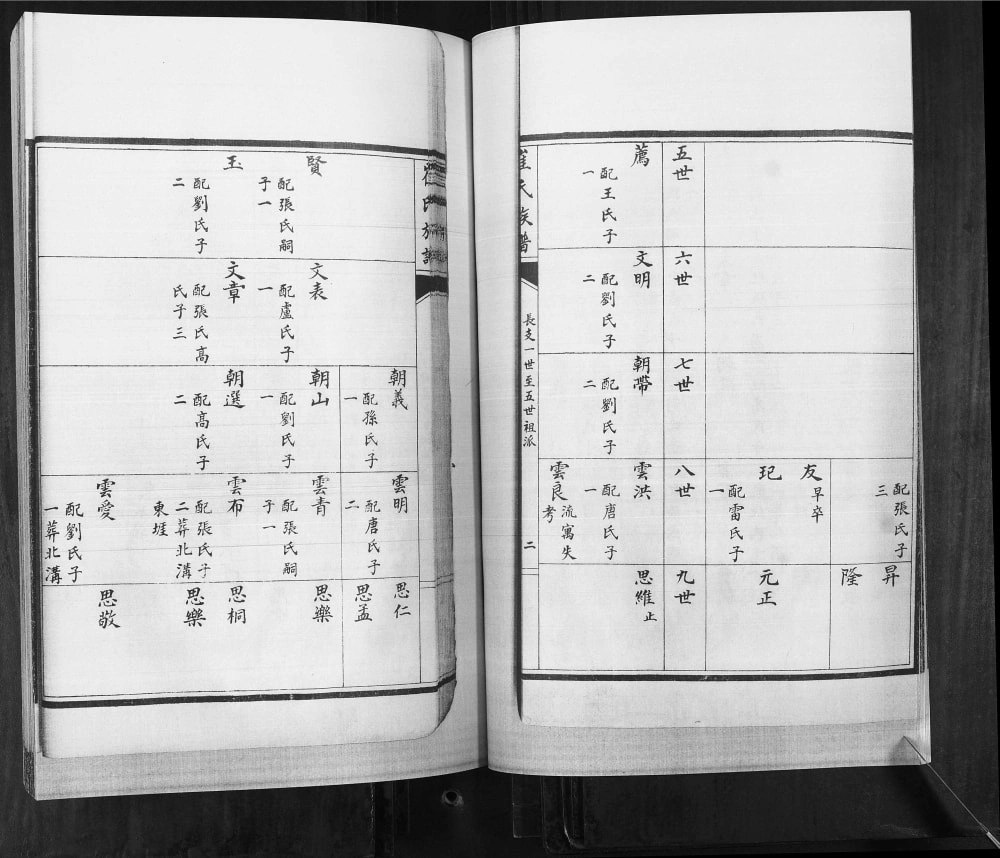 配張氏子
三
昇
隆
友
早卒
玘
配雷氏子
一
元正
五世
六世
七世
八世
九世
薦
配王氏子
一
文明
配劉氏子
二
朝帶
配劉氏子
二
雲洪
配唐氏子
一
雲良
流寓失
考
思維
止
崔氏族譜
長支一世至五世祖派
二
賢
配張氏嗣
子一
玉
配劉氏子
二
文表
配盧氏子
一
文章
配張氏高
氏子三
朝義
配孫氏子
一
朝山
配劉氏子
一
朝選
配高氏子
二
雲明
配唐氏子
二
雲青
配張氏嗣
子一
雲布
配張氏子
二葬北溝
東堐
雲愛
配劉氏子
一葬北溝
思仁
思孟
思樂
思桐
思樂
思敬